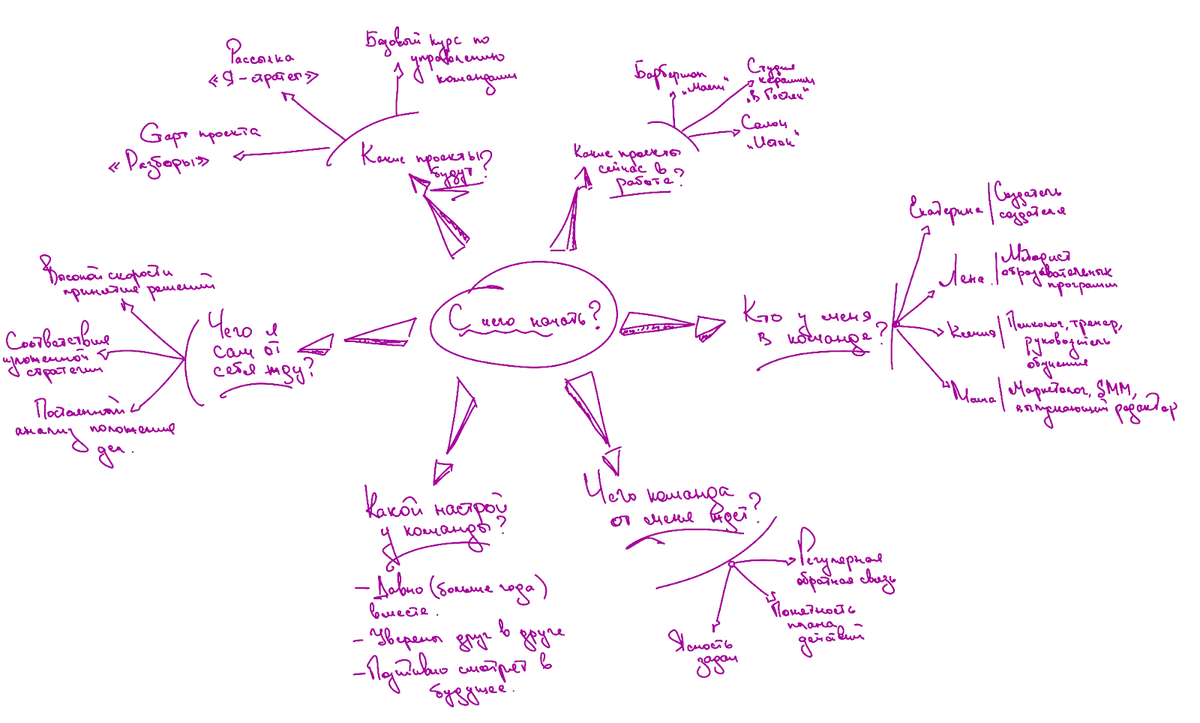 Рассылка
«Я-стратег»
Базовый курс по
управлению
командами
Старт проекта
«Разборы»
Какие проекты
будут?
Барбершоп
„Масти"
Студия
керамики
„В Гостях"
Салон
Какие проекты
сейчас в
работе?
Екатерина | Создатель
создателя
Лена | Методист
образовательных
программ
Ксения | Психолог, тренер,
руководитель
обучения
Маша | Маркетолог, SMM,
выпускающий редактор
Кто у меня
в команде?
С чего начать?
Высокой скорости
принятие решений
Соответствие
изложенной
стратегии
Постоянный
анализ положения
дел.
Чего я
сам от
себя жду?
Какой настрой
у команды?
– Давно (больше года)
вместе.
– Уверены друг в друге
– Позитивно смотрят в
будущее.
Чего команда
от меня ждёт?
Регулярная
обратная связь
Понятность
плана
действий
Ясность
задач